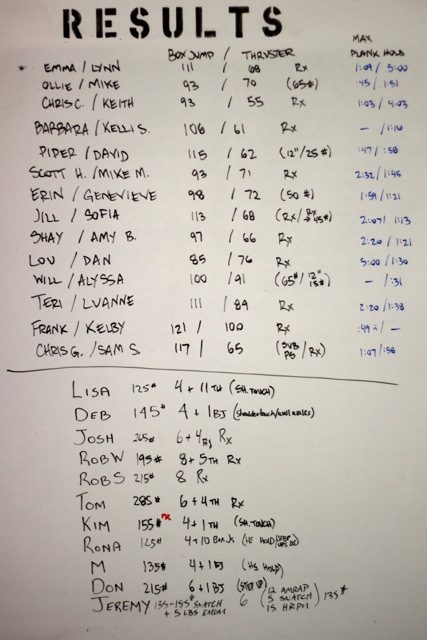 RESULTS
BOX JUMP / THRUSTER MAX PLANK HOLD
* EMMA / LYNN 111 / 68 Rx 1:09 / 5:00
OLLIE / MIKE 93 / 70 (65#) :45 / 1:51
CHRIS C. / KEITH 93 / 55 Rx 1:03 / 4:03
BARBARA / KELLI S. 106 / 61 Rx - / 1:16
PIPER / DAVID 115 / 62 (12"/25#) :47 / :58
SCOTT H. / MIKE M. 93 / 71 Rx 2:32 / 1:46
ERIN / GENEVIEVE 98 / 72 (50#) 1:59 / 1:21
JILL / SOFIA 113 / 68 (Rx / 45#) 2:07 / 1:13
SHAY / AMY B. 97 / 66 Rx 2:20 / 1:21
LOU / DAN 85 / 76 Rx 5:00 / 1:30
WILL / ALYSSA 100 / 91 (65# / 12" 15#) - / :31
TERI / LUANNE 111 / 89 Rx 2:20 / 1:38
FRANK / KELBY 121 / 100 Rx :49 / -
CHRIS G. / SAM S. 117 / 65 (SUB PS / Rx) 1:07 / :58
LISA 125# 4 + 11TH (SH. TOUCH)
DEB 145# 4 + 1BJ (shoulder touch/wall walks)
JOSH 265# 6 + 4BJ Rx
ROB W 195# 8 + 5TH Rx
ROB S 215# 8 Rx
TOM 285# 6 + 4TH Rx
KIM 155# 4 + 1TH (SH. TOUCH)
RONA 125# 4 + 10 (HS HOLD/
M 135# 4 + 1BJ (HS HOLD)
DON 215# 6 + 1BJ (STEP UP)
JEREMY 135-155# SNATCH + 5 LBS EMOM 6 (12 AMRAP 5 SNATCH 15 HRPU) 135#